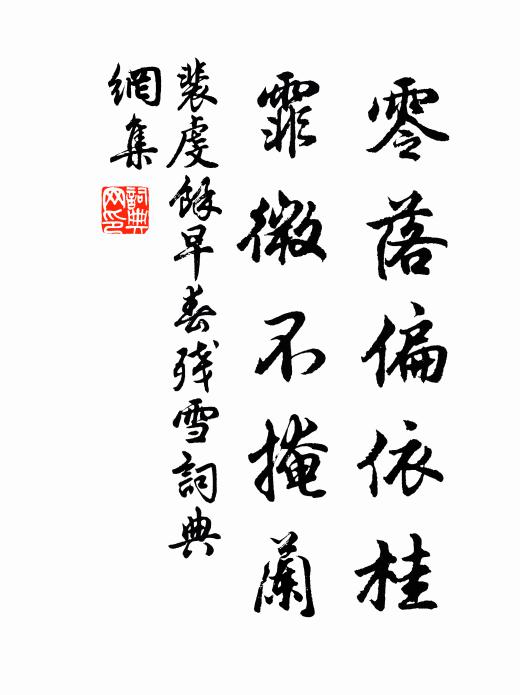 零落偏依桂
霏微不掩蘭
裴虔餘早春殘雪詞典
網集
詞典
網印